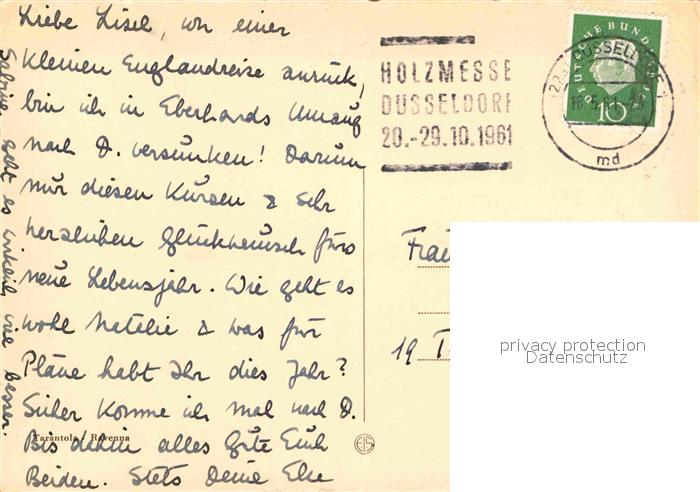 Liebe Lisel, von einer
kleinen Englandreise zurück,
bin ich in Eberhards Umzug
nach D. versunken! Darum
nur diesen kurzen & sehr
herzlichen Glückwunsch fürs
neue Lebensjahr. Wie geht es
wohl Natalie & was für
Pläne habt Ihr dies Jahr?
Sicher komme ich mal nach D.
Bis dahin alles gute Euch
Beiden. Stets Deine Else
Sabine geht es wirklich besser.
Tarantola - Ravenna
HOLZMESSE
DÜSSELDORF
20.-29.10.1961
DEUTSCHE BUNDESPOST
10
DÜSSELDORF
md
Frau
19 T
privacy protection
Datenschutz